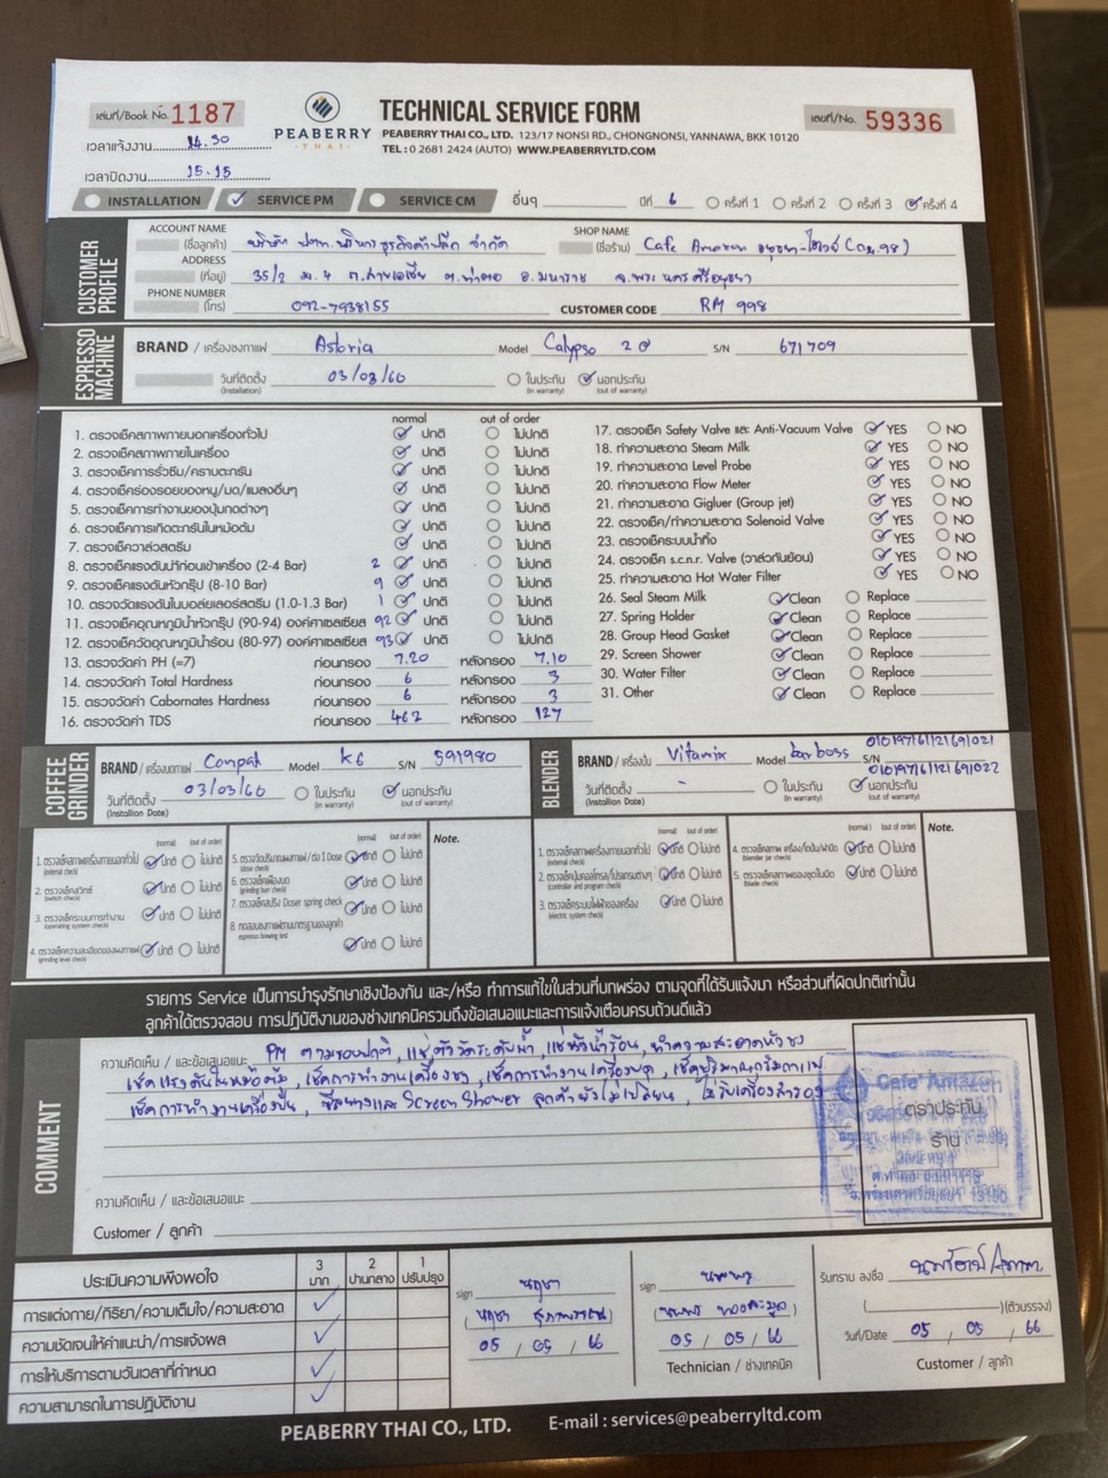 เล่มที่/Book No. 1187
PEABERRY
THAI
TECHNICAL SERVICE FORM
PEABERRY THAI CO., LTD. 123/17 NONSI RD., CHONGNONSI, YANNAWA, BKK 10120
TEL : 0 2681 2424 (AUTO) WWW.PEABERRYLTD.COM
เลขที่/No. 59336
เวลาแจ้งงาน 14.30
เวลาปิดงาน 15.15
INSTALLATION SERVICE PM SERVICE CM อื่นๆ ปีที่ 6 ครั้งที่ 1 ครั้งที่ 2 ครั้งที่ 3 ครั้งที่ 4
CUSTOMER PROFILE
ACCOUNT NAME (ชื่อลูกค้า) บริษัท ปตท. บริหารธุรกิจค้าปลีก จำกัด SHOP NAME (ชื่อร้าน) Cafe Amazon
ADDRESS (ที่อยู่) 35/2 ม.4 ต.สายเอเซีย ต.ท่าตอ อ.มหาราช จ.พระนครศรีอยุธยา
PHONE NUMBER (โทร) 092-7938155 CUSTOMER CODE RM 998
ESPRESSO MACHINE
BRAND / เครื่องชงกาแฟ Astoria Model Calypso 2 S/N 671709
วันที่ติดตั้ง (Installation) 03/03/60 ในประกัน (in warranty) นอกประกัน (out of warranty)
normal out of order
1. ตรวจเช็คสภาพภายนอกเครื่องทั่วไป ปกติ ไม่ปกติ
2. ตรวจเช็คสภาพภายในเครื่อง ปกติ ไม่ปกติ
3. ตรวจเช็คการรั่วซึม/คราบตะกรัน ปกติ ไม่ปกติ
4. ตรวจเช็คร่องรอยของหนู/มด/แมลงอื่นๆ ปกติ ไม่ปกติ
5. ตรวจเช็คการทำงานของปุ่มกดต่างๆ ปกติ ไม่ปกติ
6. ตรวจเช็คการเกิดตะกรันในหม้อต้ม ปกติ ไม่ปกติ
7. ตรวจเช็ควาล์วสตรีม ปกติ ไม่ปกติ
8. ตรวจเช็คแรงดันน้ำก่อนเข้าเครื่อง (2-4 Bar) 2 ปกติ ไม่ปกติ
9. ตรวจเช็คแรงดันหัวกรุ๊ป (8-10 Bar) 9 ปกติ ไม่ปกติ
10. ตรวจวัดแรงดันในบอล์ยเลอร์สตรีม (1.0-1.3 Bar) 1 ปกติ ไม่ปกติ
11. ตรวจเช็คอุณหภูมิน้ำหัวกรุ๊ป (90-94) องศาเซลเซียส 92 ปกติ ไม่ปกติ
12. ตรวจเช็ควัดอุณหภูมิน้ำร้อน (80-97) องศาเซลเซียส 93 ปกติ ไม่ปกติ
13. ตรวจวัดค่า PH (=7) ก่อนกรอง 7.20 หลังกรอง 7.10
14. ตรวจวัดค่า Total Hardness ก่อนกรอง 6 หลังกรอง 3
15. ตรวจวัดค่า Cabornates Hardness ก่อนกรอง 6 หลังกรอง 3
16. ตรวจวัดค่า TDS ก่อนกรอง 462 หลังกรอง 127
17. ตรวจเช็ค Safety Valve และ Anti-Vacuum Valve YES NO
18. ทำความสะอาด Steam Milk YES NO
19. ทำความสะอาด Level Probe YES NO
20. ทำความสะอาด Flow Meter YES NO
21. ทำความสะอาด Gigluer (Group jet) YES NO
22. ตรวจเช็ค/ทำความสะอาด Solenoid Valve YES NO
23. ตรวจเช็คระบบน้ำทิ้ง YES NO
24. ตรวจเช็ค s.c.n.r. Valve (วาล์วกันย้อน) YES NO
25. ทำความสะอาด Hot Water Filter YES NO
26. Seal Steam Milk Clean Replace
27. Spring Holder Clean Replace
28. Group Head Gasket Clean Replace
29. Screen Shower Clean Replace
30. Water Filter Clean Replace
31. Other Clean Replace
COFFEE GRINDER
BRAND / เครื่องบดกาแฟ Compak Model K6 S/N 591980
วันที่ติดตั้ง (Installion Date) 03/03/60 ในประกัน (in warranty) นอกประกัน (out of warranty)
BLENDER
BRAND / เครื่องปั่น Vitamix Model barboss S/N 010197161121691021
010197161121691022
วันที่ติดตั้ง (Installion Date) - ในประกัน (in warranty) นอกประกัน (out of warranty)
(normal) (out of order)
1. ตรวจเช็คสภาพเครื่องภายนอกทั่วไป (external check) ปกติ ไม่ปกติ
2. ตรวจเช็คสวิทซ์ (switch check) ปกติ ไม่ปกติ
3. ตรวจเช็คระบบการทำงาน (operating system check) ปกติ ไม่ปกติ
4. ตรวจเช็คความละเอียดของผงกาแฟ (grinding level check) ปกติ ไม่ปกติ
(normal) (out of order)
5. ตรวจวัดปริมาณผงกาแฟ/ต่อ 1 Dose (dose check) ปกติ ไม่ปกติ
6. ตรวจเช็คเฟืองบด (grinding burr check) ปกติ ไม่ปกติ
7. ตรวจเช็คสปริง Doser spring check ปกติ ไม่ปกติ
8. ทดสอบชงกาแฟตามมาตรฐานของลูกค้า espresso brewing test ปกติ ไม่ปกติ
Note.
(normal) (out of order)
1. ตรวจเช็คสภาพเครื่องภายนอกทั่วไป (external check) ปกติ ไม่ปกติ
2. ตรวจเช็คปุ่มคอลโทรล/โปรแกรมต่างๆ (controller and program check) ปกติ ไม่ปกติ
3. ตรวจเช็คระบบไฟฟ้าของเครื่อง (electric system check) ปกติ ไม่ปกติ
(normal) (out of order)
4. ตรวจเช็คสภาพ เครื่อง/โถปั่น/ฝาปิด (blender jar check) ปกติ ไม่ปกติ
5. ตรวจเช็คสภาพของชุดใบมีด (Blade check) ปกติ ไม่ปกติ
Note.
รายการ Service เป็นการบำรุงรักษาเชิงป้องกัน และ/หรือ ทำการแก้ไขในส่วนที่บกพร่อง ตามจุดที่ได้รับแจ้งมา หรือส่วนที่ผิดปกติเท่านั้น
ลูกค้าได้ตรวจสอบ การปฏิบัติงานของช่างเทคนิครวมถึงข้อเสนอแนะและการแจ้งเตือนครบถ้วนดีแล้ว
COMMENT
ความคิดเห็น / และข้อเสนอแนะ PM ตามรอบปกติ, แช่ตัววัดระดับน้ำ, แช่หัวน้ำร้อน, ทำความสะอาดหัวชง
เช็คแรงดันในหม้อต้ม, เช็คการทำงานเครื่องชง, เช็คการทำงานเครื่องบด, เช็คปริมาณกรัมกาแฟ
เช็คการทำงานเครื่องปั่น, ซีลยางและ Screen Shower ลูกค้ายังไม่เปลี่ยน, ไม่รับเครื่องสำรอง
Café Amazon
ตราประทับ
ร้าน
ความคิดเห็น / และข้อเสนอแนะ
Customer / ลูกค้า
ประเมินความพึงพอใจ 3 มาก 2 ปานกลาง 1 ปรับปรุง
การแต่งกาย/กิริยา/ความเต็มใจ/ความสะอาด
ความชัดเจนให้คำแนะนำ/การแจ้งผล
การให้บริการตามวันเวลาที่กำหนด
ความสามารถในการปฏิบัติงาน
sign
05 / 05 / 66
sign นพพร
05 / 05 / 66
Technician / ช่างเทคนิค
รับทราบ ลงชื่อ
( )(ตัวบรรจง)
วันที่/Date 05 / 05 / 66
Customer / ลูกค้า
PEABERRY THAI CO., LTD. E-mail : services@peaberryltd.com